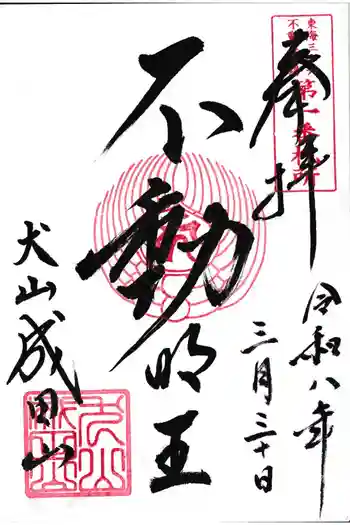 奉拝
令和八年
三月三十日
不動明王
犬山成田山
東海三
不動
第一番札所